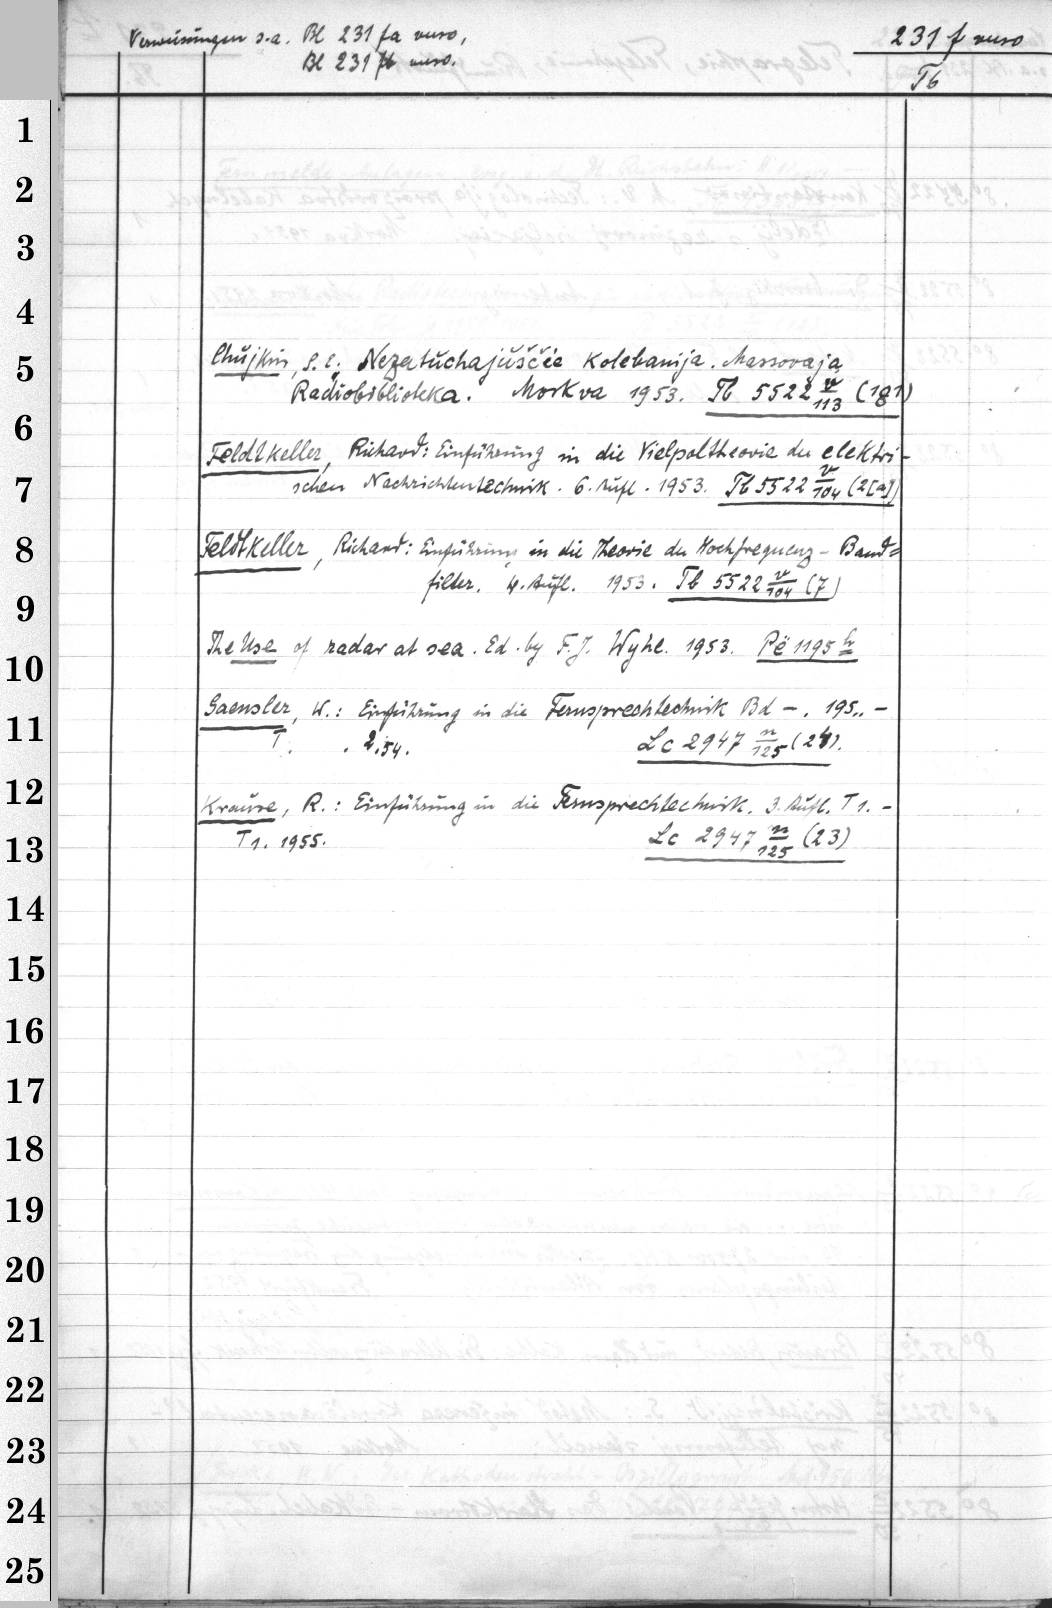 Verweisungen s.a. Bl 231 fa verso,
Bl 231 fb verso.
231 f verso
Tb
1
2
3
4
5
6
7
8
9
10
11
12
13
14
15
16
17
18
19
20
21
22
23
24
25
Chujkin, S. E.: Nezatuchajuščie Kolebanija. Massovaja
Radiobiblioteka. Moskva 1953. Tb 5522 v/113 (181)
Feldtkeller, Richard: Einführung in die Vielpoltheorie der elektri-
schen Nachrichtentechnik. 6. Aufl. 1953. Tb 5522 v/104 (2[a])
Feldtkeller, Richard: Einführung in die Theorie der Hochfrequenz-Band=
filter. 4. Aufl. 1953. Tb 5522 v/104 (7)
The Use of radar at sea. Ed. by F.J. Wylie. 1953. Pë 1195 h
Gaensler, W.: Einführung in die Fernsprechtechnik Bd -. 195.. -
T. . 2.54. Lc 2947 n/125 (24).
Krause, R.: Einführung in die Fernsprechtechnik. 3. Aufl. T 1. -
T 1. 1955. Lc 2947 n/125 (23)